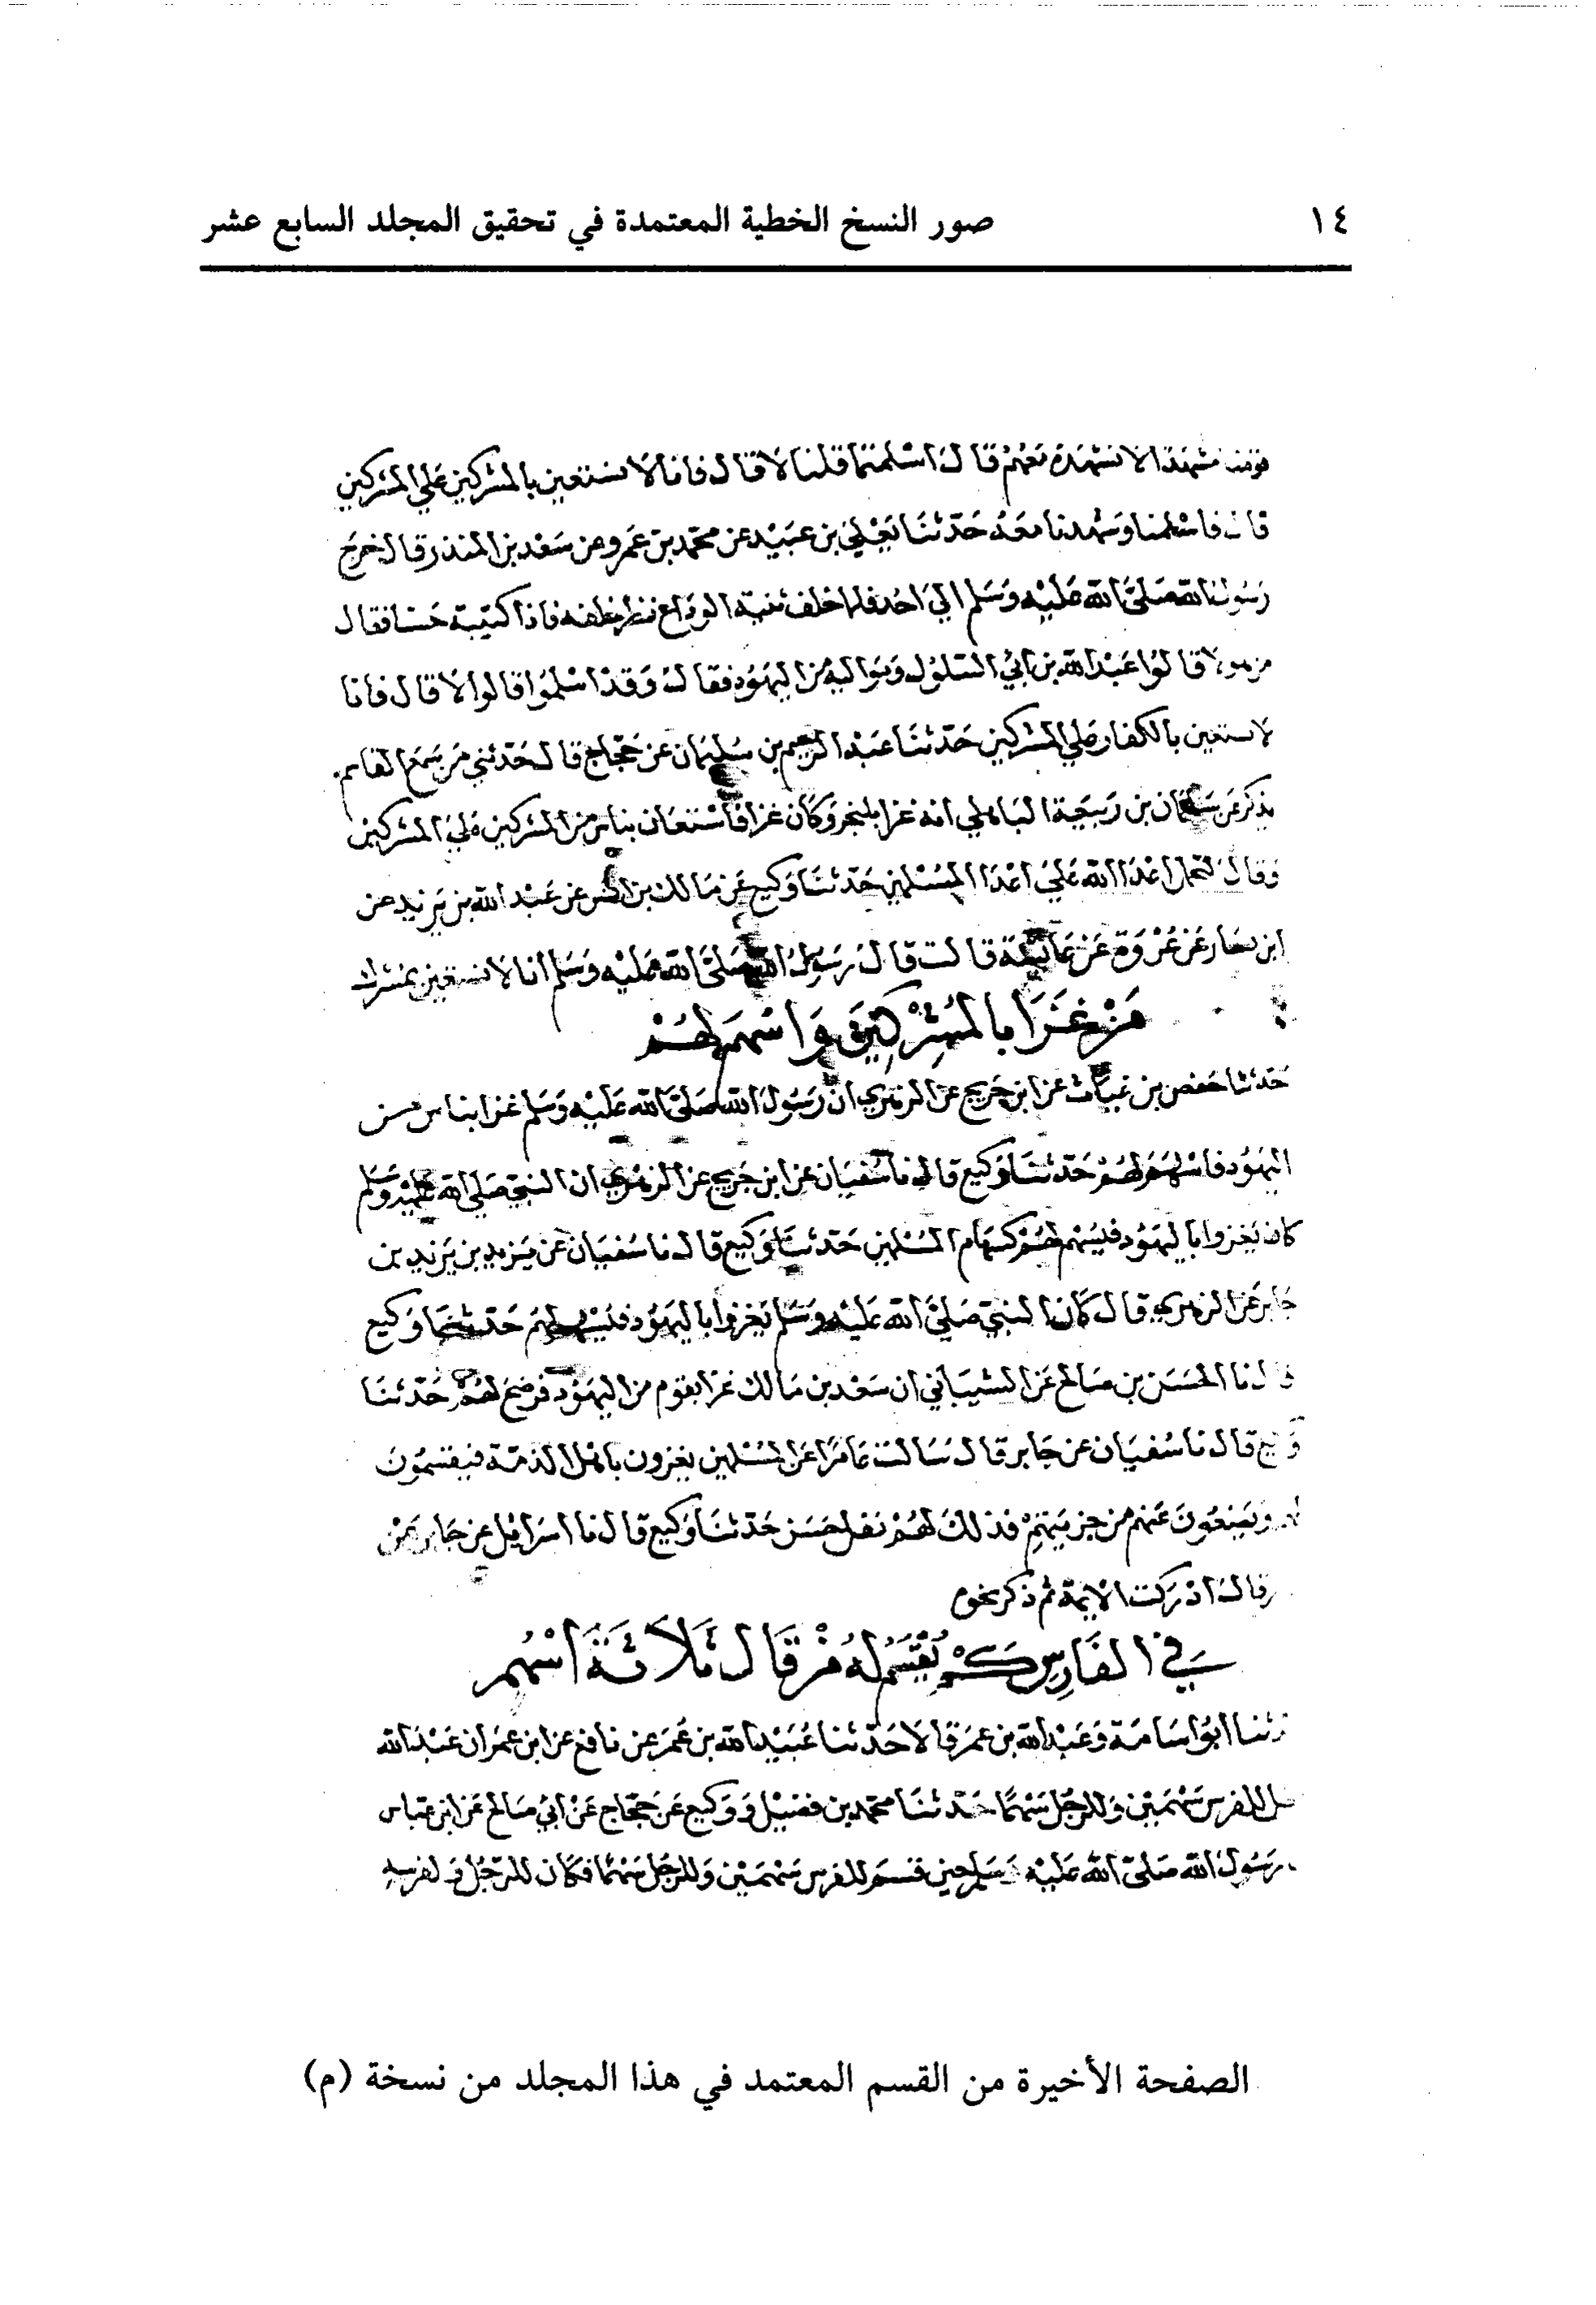 ١٤ صور النسخ الخطية المعتمدة في تحقيق المجلد السابع عشر
قومنا مشهدا لا نشهده معهم قال اسلمتما قلنا لا قال فانا لا نستعين بالمشركين علي المشركين
قال فاسلمنا وشهدنا معه حدثنا يعلي بن عبيد عن محمد بن عمرو عن سعد بن المنذر قال خرج
رسول الله صلى الله عليه وسلم الي احد فلما خلف ثنية الوداع نظر خلفه فاذا كتيبة خشنا فقال
من هولا قالوا عبد الله بن ابي السلول ومواليه من اليهود فقال وقد اسلموا قالوا لا قال فانا
لا نستعين بالكفار علي المشركين حدثنا عبد الرحيم بن سليمان عن حجاج قال حدثني من سمع القاسم
يذكر عن سلمان بن ربيعة الباهلي انه غزا بلنجر وكان غزا فاستعان بناس من المشركين علي المشركين
وقال لتحمل اعدا الله علي اعدا المسلمين حدثنا وكيع عن مالك بن انس عن عبد الله بن يزيد عن
ابن نيار عن عروة عن عائشة قالت قال رسول الله صلى الله عليه وسلم انا لا نستعين بمشرك
من غزا بالمشركين واسهم لهم
حدثنا حفص بن غياث عن ابن جريج عن الزهري ان رسول الله صلى الله عليه وسلم غزا بناس من
اليهود فاسهم لهم حدثنا وكيع قال نا سفيان عن ابن جريج عن الزهري ان النبي صلي الله عليه وسلم
كان يغزوا باليهود فيسهم لهم كسهام المسلمين حدثنا وكيع قال نا سفيان عن يزيد بن يزيد بن
جابر عن الزهري قال كان النبي صلى الله عليه وسلم يغزوا باليهود فيسهم لهم حدثنا وكيع
قال نا الحسن بن صالح عن الشيباني ان سعد بن مالك غزا بقوم من اليهود فرضخ لهم حدثنا
وكيع قال نا سفيان عن جابر قال سالت عامرا عن المسلمين يغزون باهل الذمة فيقسمون
لهم ويضعون عنهم من جزيتهم فذلك لهم نفل حسن حدثنا وكيع قال نا اسرائيل عن جابر عن
قال ادركت الايمة ثم ذكر نحوه
في الفارس كم يقسم له من قال ثلاثة اسهم
حدثنا ابو اسامة وعبد الله بن عمر قالا حدثنا عبيد الله بن عمر عن نافع عن ابن عمر ان عبد الله
للفرس سهمين وللرجل سهما حدثنا محمد بن فضيل ووكيع عن حجاج عن ابي صالح عن ابن عباس
رسول الله صلى الله عليه وسلم حين قسم للفرس سهمين وللرجل سهما فكان للرجل ولفرسه
الصفحة الأخيرة من القسم المعتمد في هذا المجلد من نسخة (م)